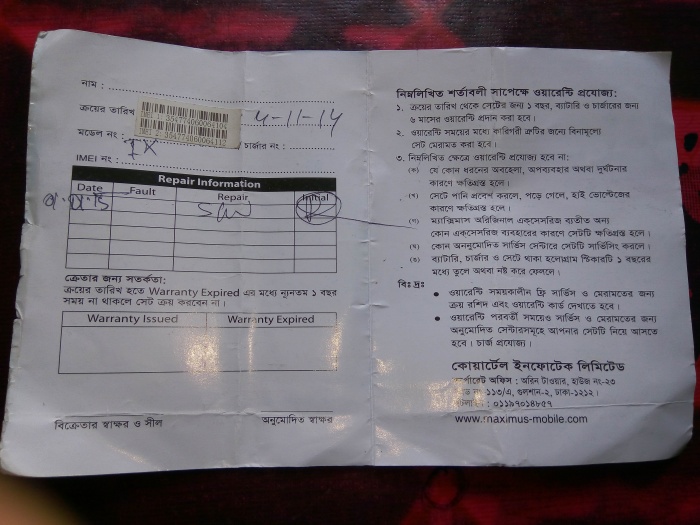 নাম :
ক্রয়ের তারিখ 4-11-14
মডেল নং : IX / চার্জার নং :
IMEI নং :
Repair Information
Date Fault Repair Initial
S/W
ক্রেতার জন্য সতর্কতা:
ক্রয়ের তারিখ হতে Warranty Expired এর মধ্যে ন্যূনতম ১ বছর
সময় না থাকলে সেট ক্রয় করবেন না।
Warranty Issued Warranty Expired
বিক্রেতার স্বাক্ষর ও সীল অনুমোদিত স্বাক্ষর
নিম্নলিখিত শর্তাবলী সাপেক্ষে ওয়ারেন্টি প্রযোজ্য:
১. ক্রয়ের তারিখ থেকে সেটের জন্য ১ বছর, ব্যাটারি ও চার্জারের জন্য
৬ মাসের ওয়ারেন্টি প্রদান করা হবে।
২. ওয়ারেন্টি সময়ের মধ্যে কারিগরী ত্রুটির জন্যে বিনামূল্যে
সেট মেরামত করা হবে।
৩. নিম্নলিখিত ক্ষেত্রে ওয়ারেন্টি প্রযোজ্য হবে না:
(ক) যে কোন ধরনের অবহেলা, অপব্যবহার অথবা দুর্ঘটনার
কারণে ক্ষতিগ্রস্ত হলে।
(খ) সেটে পানি প্রবেশ করলে, পড়ে গেলে, হাই ভোল্টেজের
কারণে ক্ষতিগ্রস্ত হলে।
(গ) ম্যাক্সিমাস অরিজিনাল এক্সেসরিজ ব্যতীত অন্য
কোন এক্সেসরিজ ব্যবহারের কারণে সেটটি ক্ষতিগ্রস্ত হলে।
(ঘ) কোন অননুমোদিত সার্ভিস সেন্টারে সেটটি সার্ভিসিং করলে।
(ঙ) ব্যাটারি, চার্জার ও সেটে থাকা হলোগ্রাম স্টিকারটি ১ বছরের
মধ্যে তুলে অথবা নষ্ট করে ফেললে।
বিঃ দ্রঃ
● ওয়ারেন্টি সময়কালীন ফ্রি সার্ভিস ও মেরামতের জন্য
ক্রয় রশিদ এবং ওয়ারেন্টি কার্ড দেখাতে হবে।
● ওয়ারেন্টি পরবর্তী সময়েও সার্ভিস ও মেরামতের জন্য
অনুমোদিত সেন্টারসমূহে আপনার সেটটি নিয়ে আসতে
হবে। চার্জ প্রযোজ্য।
কোয়ার্টেল ইনফোটেক লিমিটেড
কর্পোরেট অফিস : অরিন টাওয়ার, হাউজ নং-২৩
নং-১১৩/এ, গুলশান-২, ঢাকা-১২১২।
: ০১১৯৭০১৪৮৫৭
www.maximus-mobile.com